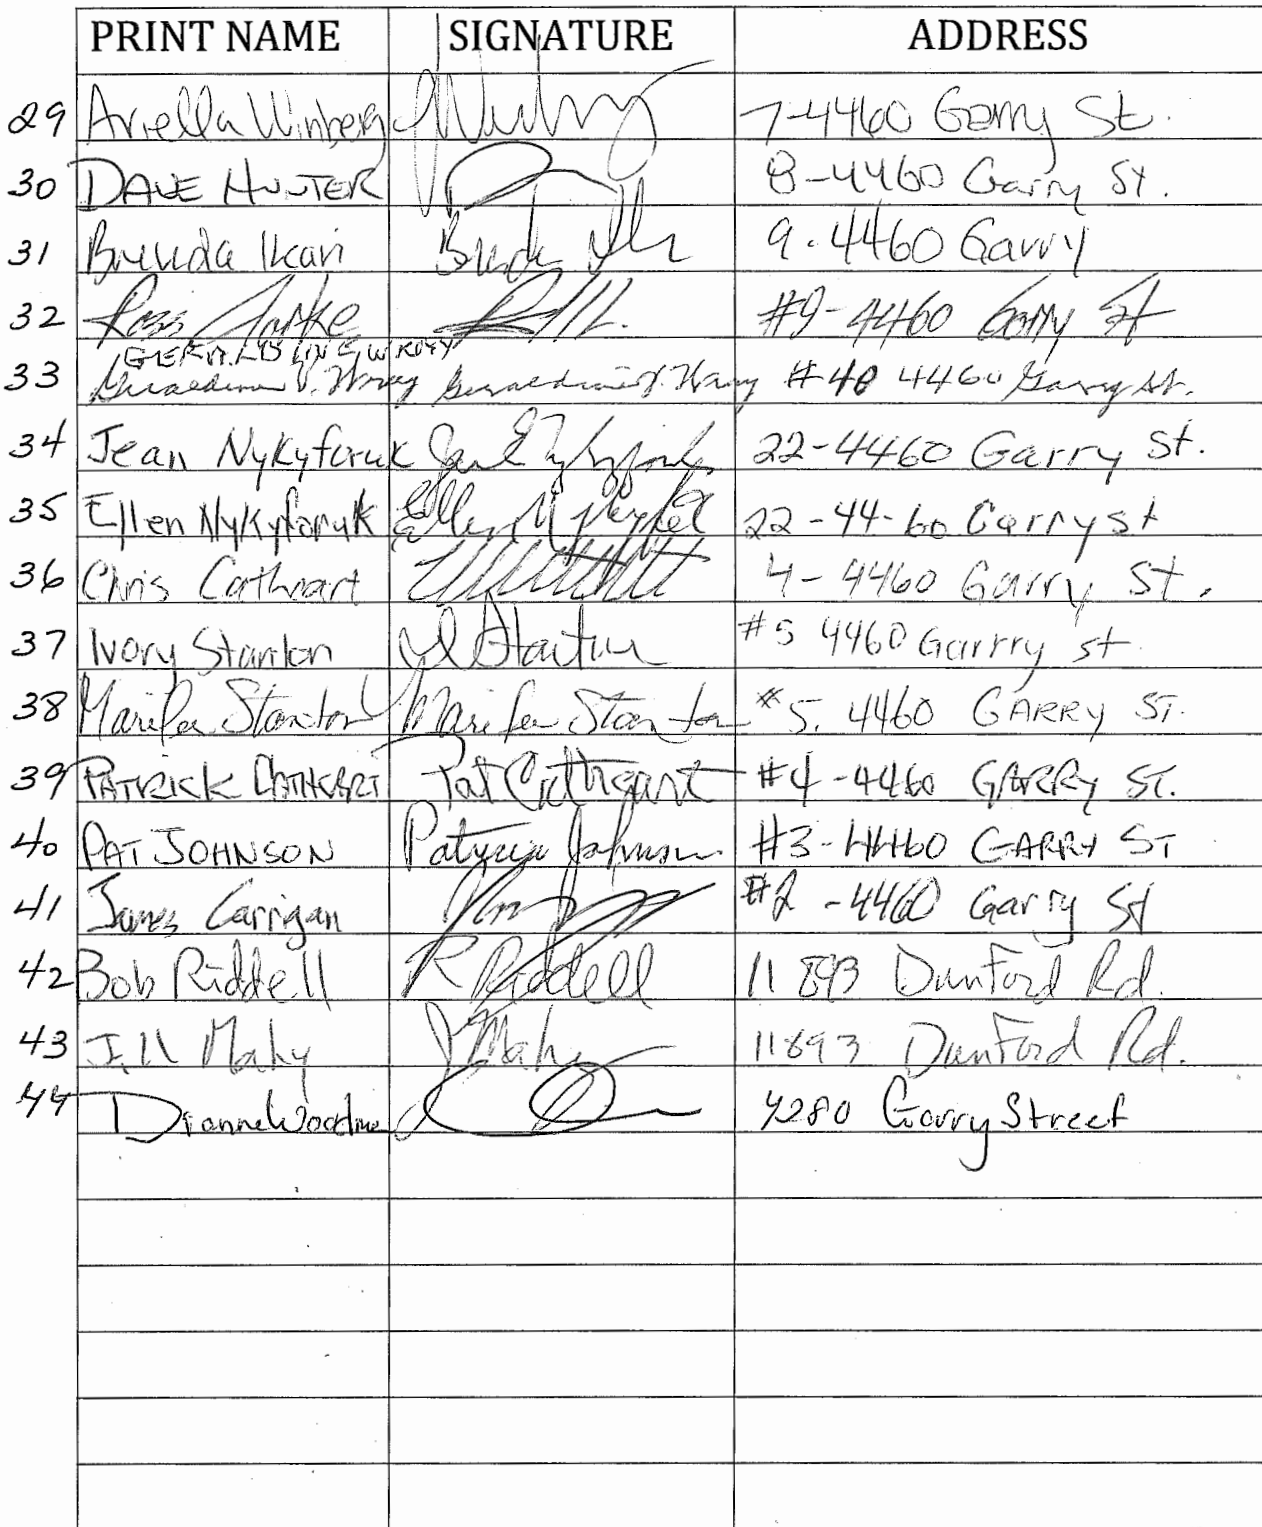 PRINT NAME SIGNATURE ADDRESS
29 Ariella Winberg 7-4460 Garry St.
30 DAVE HUNTER 8-4460 Garry St.
31 Brenda Ikari Brenda 9-4460 Garry
32 Ross #9-4460 Garry St
GERALDINE WRAY
33 Geraldine V. Wray Geraldine V. Wray #40 4460 Garry St.
34 Jean Nykyforuk Jean Nykyforuk 22-4460 Garry St.
35 Ellen Nykyforuk Ellen 22-44-60 Garry st
36 Chris Cathcart 4-4460 Garry St.
37 Ivory Stanton Stanton #5 4460 Garrry st
38 Marifer Stanton Marifer Stanton #5. 4460 GARRY ST.
39 PATRICK CATHCART Pat Cathcart #4-4460 GARRY ST.
40 PAT JOHNSON Patricia Johnson #3-4460 GARRY ST
41 James Carrigan #2-4460 Garry St
42 Bob Riddell R Riddell 11893 Dunford Rd.
43 Jill Mahy J Mahy 11893 Dunford Rd.
44 Dianne 4280 Garry Street